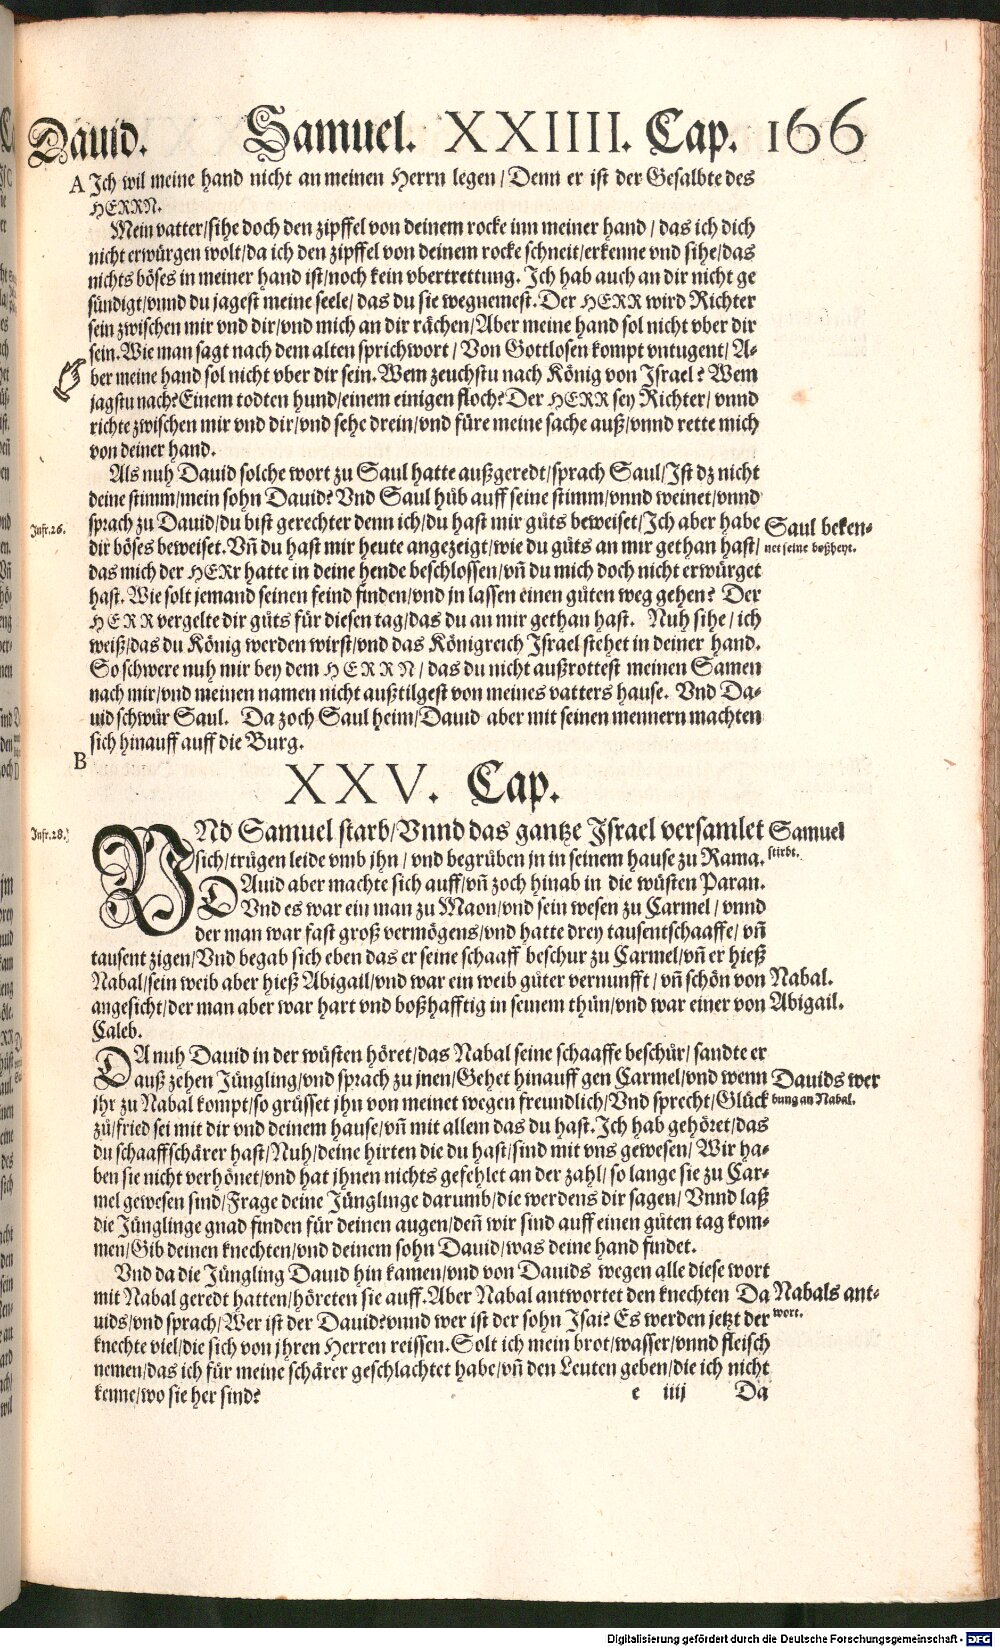 Dauid. Samuel. XXIIII. Cap. 166
A Ich wil meine hand nicht an meinen Herrn legen/Denn er ist der Gesalbte des
HERRN.
Mein vatter/sihe doch den zipffel von deinem rocke inn meiner hand/das ich dich
nicht erwürgen wolt/da ich den zipffel von deinem rocke schneit/erkenne vnd sihe/das
nichts böses in meiner hand ist/noch kein vbertrettung. Ich hab auch an dir nicht ge
sündigt/vnnd du jagest meine seele/das du sie wegnemest. Der HERR wird Richter
sein zwischen mir vnd dir/vnd mich an dir rächen/Aber meine hand sol nicht vber dir
sein. Wie man sagt nach dem alten sprichwort/Von Gottlosen kompt vntugent/A-
ber meine hand sol nicht vber dir sein. Wem zeuchstu nach König von Israel? Wem
jagstu nach? Einem todten hund/einem einigen floch? Der HERR sey Richter/vnnd
richte zwischen mir vnd dir/vnd sehe drein/vnd füre meine sache auß/vnnd rette mich
von deiner hand.
Als nuh Dauid solche wort zu Saul hatte außgeredt/sprach Saul/Ist dz nicht
deine stimm/mein sohn Dauid? Vnd Saul hůb auff seine stimm/vnnd weinet/vnnd
Infr.26. sprach zu Dauid/du bist gerechter denn ich/du hast mir gůts beweiset/Ich aber habe Saul beken-
dir böses beweiset. Vñ du hast mir heute angezeigt/wie du gůts an mir gethan hast/ net seine boßheyt.
das mich der HERr hatte in deine hende beschlossen/vñ du mich doch nicht erwürget
hast. Wie solt jemand seinen feind finden/vnd jn lassen einen gůten weg gehen? Der
HERR vergelte dir gůts für diesen tag/das du an mir gethan hast. Nuh sihe/ich
weiß/das du König werden wirst/vnd das Königreich Israel stehet in deiner hand.
So schwere nuh mir bey dem HERRN/das du nicht außrottest meinen Samen
nach mir/vnd meinen namen nicht außtilgest von meines vatters hause. Vnd Da-
uid schwůr Saul. Da zoch Saul heim/Dauid aber mit seinen mennern machten
sich hinauff auff die Burg.
B
XXV. Cap.
Infr.28. VNd Samuel starb/Vnnd das gantze Israel versamlet Samuel
sich/trůgen leide vmb jhn/vnd begrůben jn in seinem hause zu Rama. stirbt.
DAuid aber machte sich auff/vñ zoch hinab in die wůsten Paran.
Vnd es war ein man zu Maon/vnd sein wesen zu Carmel/vnnd
der man war fast groß vermögens/vnd hatte drey tausent schaaffe/vñ
tausent zigen/Vnd begab sich eben das er seine schaaff beschur zu Carmel/vñ er hieß
Nabal/sein weib aber hieß Abigail/vnd war ein weib gůter vernunfft/vñ schön von Nabal.
angesicht/der man aber war hart vnd boßhafftig in seinem thůn/vnd war einer von Abigail.
Caleb.
DA nuh Dauid in der wůsten höret/das Nabal seine schaaffe beschůr/sandte er
auß zehen Jüngling/vnd sprach zu jnen/Gehet hinauff gen Carmel/vnd wenn Dauids wer
jhr zu Nabal kompt/so grüsset jhn von meinet wegen freundlich/Vnd sprecht/Glück bung an Nabal.
zů/fried sei mit dir vnd deinem hause/vñ mit allem das du hast. Ich hab gehöret/das
du schaaffschärer hast/Nuh/deine hirten die du hast/sind mit vns gewesen/Wir ha-
ben sie nicht verhönet/vnd hat jhnen nichts gefehlet an der zahl/so lange sie zu Car-
mel gewesen sind/Frage deine Jünglinge darumb/die werdens dir sagen/Vnnd laß
die Jünglinge gnad finden für deinen augen/deñ wir sind auff einen gůten tag kom-
men/Gib deinen knechten/vnd deinem sohn Dauid/was deine hand findet.
Vnd da die Jüngling Dauid hin kamen/vnd von Dauids wegen alle diese wort
mit Nabal geredt hatten/höreten sie auff. Aber Nabal antwortet den knechten Da Nabals ant-
uids/vnd sprach/Wer ist der Dauid? vnnd wer ist der sohn Isai? Es werden jetzt der wort.
knechte viel/die sich von jhren Herren reissen. Solt ich mein brot/wasser/vnnd fleisch
nemen/das ich für meine schärer geschlachtet habe/vñ den Leuten geben/die ich nicht
kenne/wo sie her sind?
e iiij Da
Digitalisierung gefördert durch die Deutsche Forschungsgemeinschaft - DFG